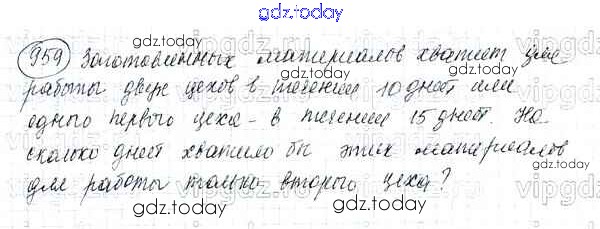 gdz.today
959 Заготовленных материалов хватит для
gdz.today
работы двух цехов в течении 10 дней или
gdz.today
одного первого цеха - в течении 15 дней. На
сколько дней хватило бы этих материалов
gdz.today
для работы только второго цеха?
gdz.today